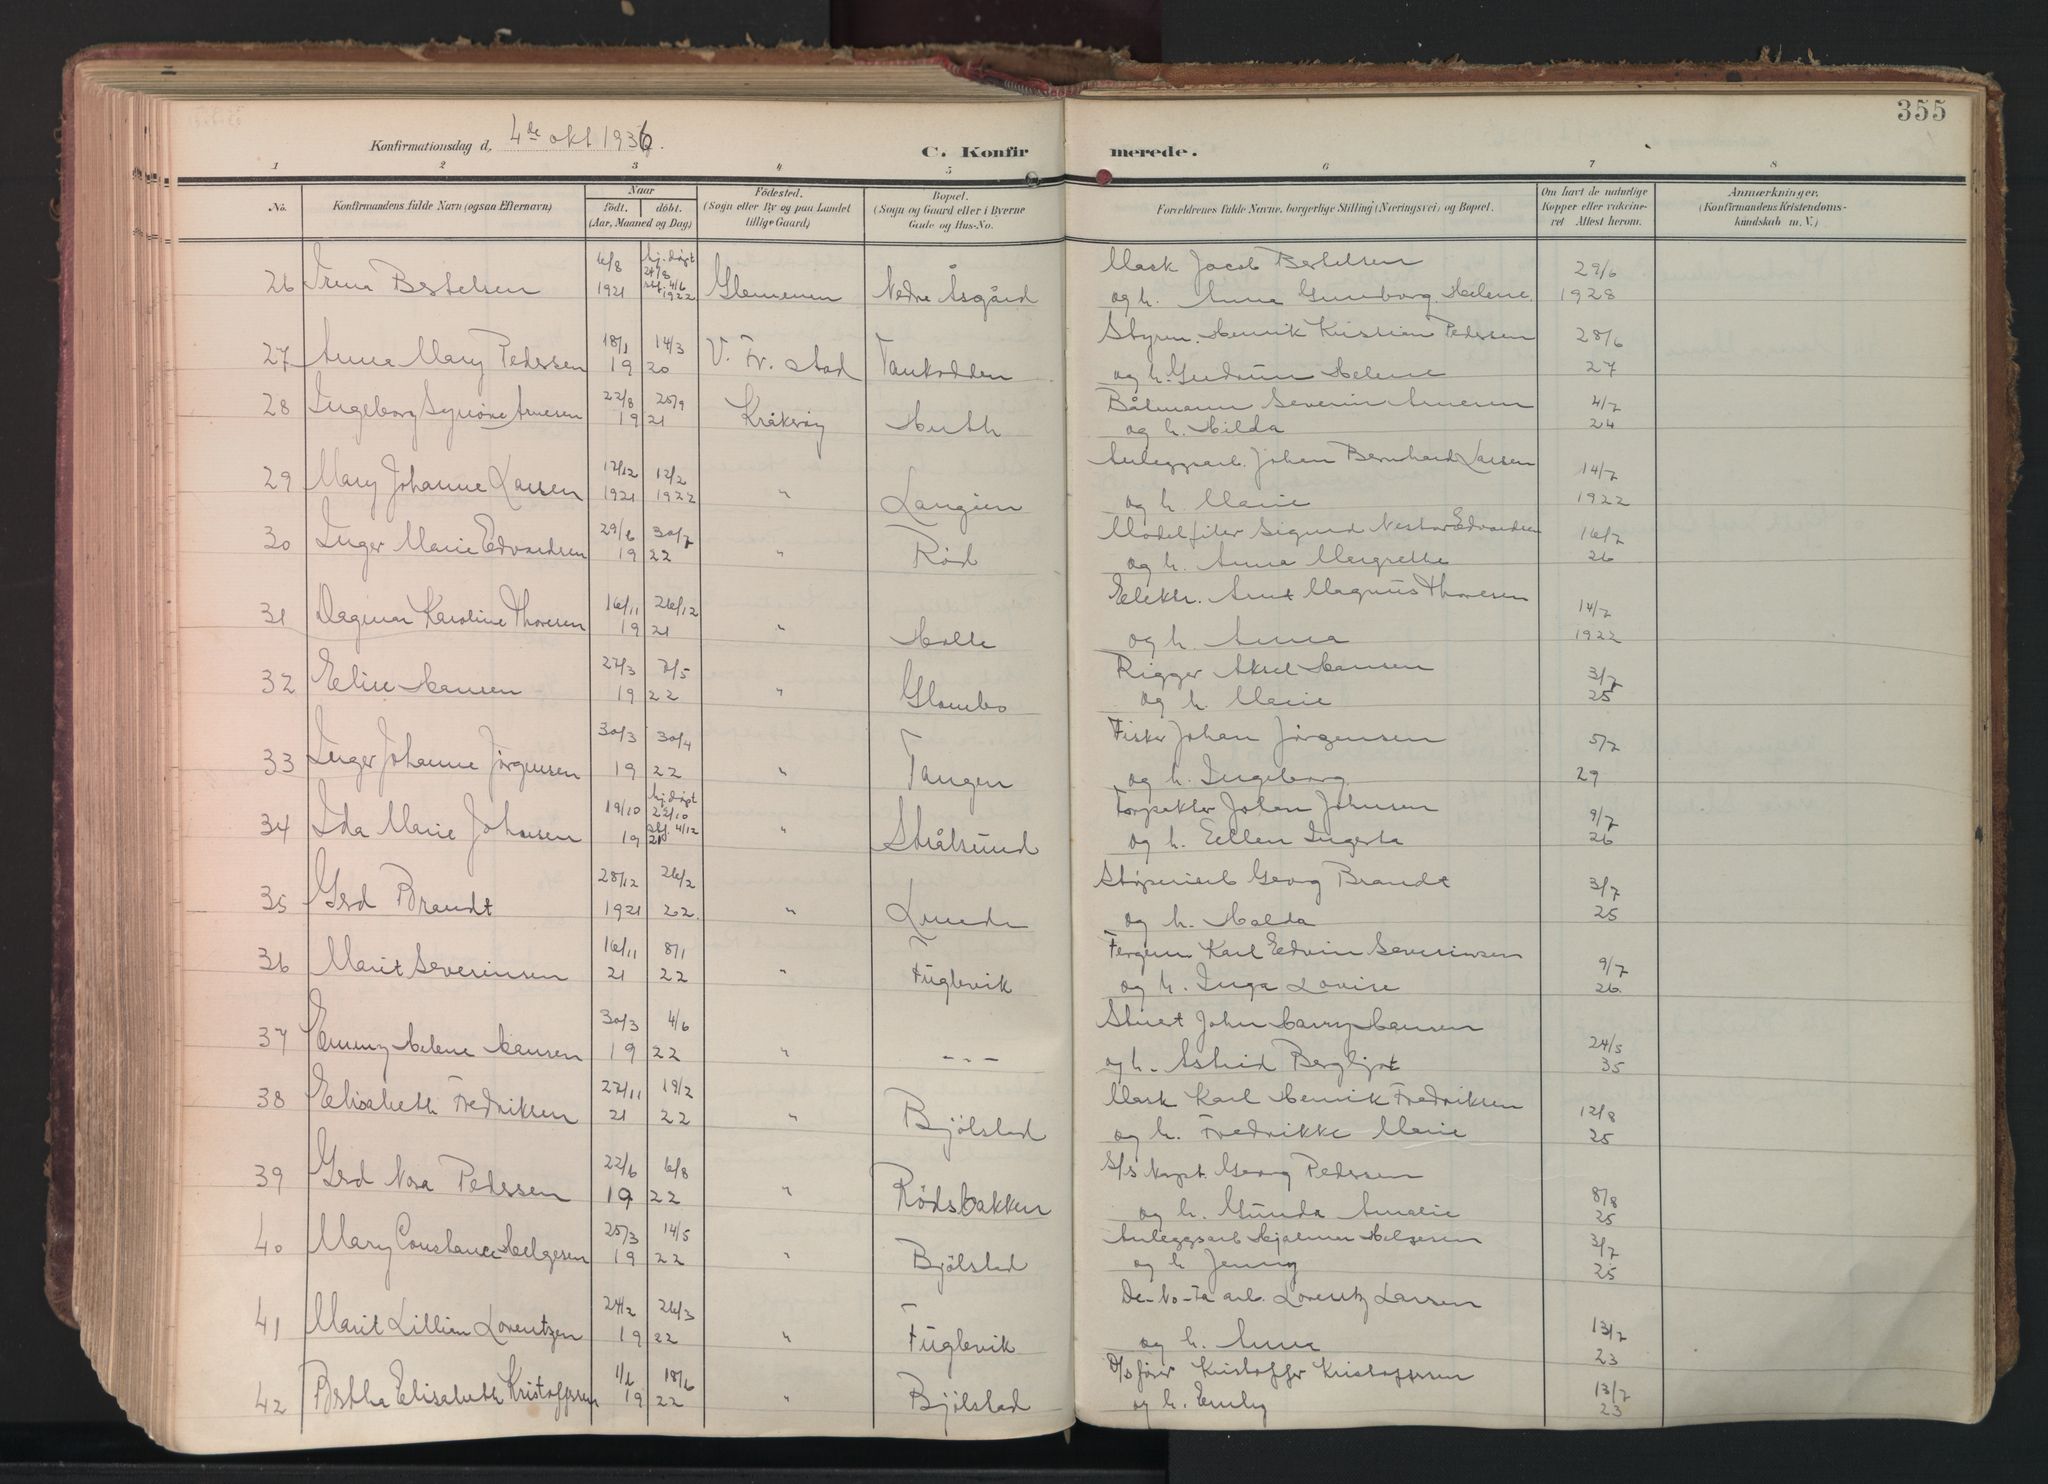 355
Konfirmationsdag d. 4de okt 1936.
C. Konfirmerede.
1 2 3 4 5 6 7 8
No. Konfirmandens fulde Navn (ogsaa Efternavn) Naar født. døbt. (Aar, Maaned og Dag) Fødested. (Sogn eller By og paa Landet tillige Gaard) Bopæl. (Sogn og Gaard eller i Byerne Gade og Hus-No. Forældrenes fulde Navne, borgerlige Stilling (Næringsvei) og Bopæl. Om havt de naturlige Kopper eller vaccineret Attest herom. Anmærkninger. (Konfirmandens Kristendomskundskab m. V.)
6/8 hj. døpt 24/8 Mask Jacob Bertelsen 29/6
26 Irena Bertelsen 1921 stf. 4/6 1922 Glemmen Nedre Åsgård og h. Anna Gunborg Helene 1928
18/1 14/3 Styrm. Henrik Kristian Pedersen 28/6
27 Anna Mary Pedersen 19 20 V. Fr. stad Tankodden og h. Gudrun Helene 27
28 Ingeborg Synøve Arnesen 22/8 25/9 Kråkerøy Båtmann Severin Arnesen 4/7
19 21 Huth og h. Hilda 24
17/12 12/2 Anleggsarb. Johan Bernhard Larsen 14/7
29 Mary Johanne Larsen 1921 1922 " Langøen og h. Marie 1922
29/6 30/7 Modelfiler Sigurd Nestor Edvardsen 16/7
30 Inger Marie Edvardsen 19 22 " Rød og h. Anna Margrethe 26
16/11 26/12 Elektr. Arnt Magnus Thoresen 14/7
31 Dagmar Karoline Thoresen 19 21 " Holte og h. Anna 1922
27/3 7/5 Rigger Aksel Hansen 3/7
32 Elise Hansen 19 22 " Glombo og h. Marie 25
30/3 30/4 Fisker Johan Jørgensen 5/7
33 Inger Johanne Jørgensen 19 22 " Tangen og h. Ingeborg 29
19/10 hj. døpt 22/10 Johan Johnsen 9/7
34 Ida Marie Johnsen 19 stf. 4/12 21 " Strålsund og h. Ellen Ingerta 26
28/12 26/2 Støperiarb Georg Brandt 3/7
35 Gerd Brandt 1921 22. " Lunde og h. Halda 25
16/11 8/1 Fergem. Karl Edvin Severinsen 9/7
36 Marit Severinsen 21 22 " Fuglevik og h. Inga Lovise 26.
30/3 4/6 Stuet John Harry Hansen 24/5
37 Emmy Helene Hansen 19 22 " - - - og h. Astrid Bergljot 35
27/11 19/2 Mask Karl Henrik Fredriksen 12/8
38 Elisabeth Fredriksen 21 22 " Bjølstad og h. Fredrikke Marie 25
22/6 6/8 S/s kapt. Georg Pedersen 8/8
39 Gerd Nora Pedersen 19 22 " Rødsbakken og h. Gunda Amalie 25
25/3 14/5 Anleggsarb Hjalmar Helgesen 3/7
40 Mary Constance Helgesen 19 22 " Bjølstad og h Jenny 25
24/2 26/3 De-No-Fa arb. Lorentz Larsen 13/7
41 Marit Lillian Lorentzen 19 22 " Fuglevik og h. Anna 23
1/6 18/6 D/s fører Kristoffer Kristoffersen 13/7
42 Bertha Elisabeth Kristoffersen 19 22 " Bjølstad og h. Emely 23